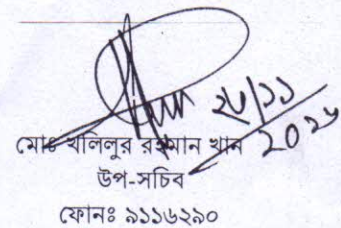 ২৮/১১
মোঃ খলিলুর রহমান খান
উপ-সচিব
ফোনঃ ৯১১৬২৯০